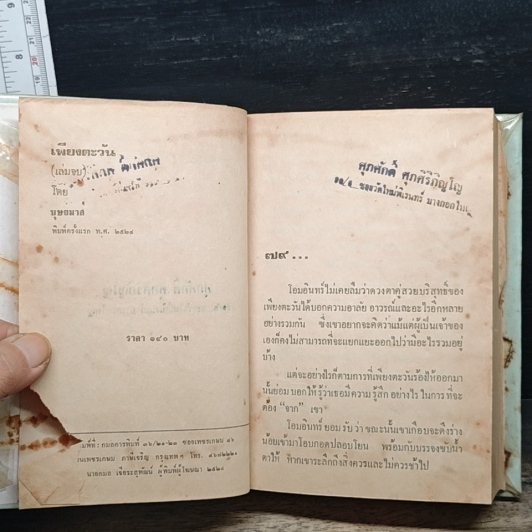 เพียงตะวัน
(เล่มจบ)
โดย
บุษยมาส
พิมพ์ครั้งแรก พ.ศ. ๒๕๒๔
ราคา ๑๔๐ บาท
พิมพ์ที่: กมลการพิมพ์ ๓๖/๒๙-๓๐ ซอยเพชรเกษม
ถนนเพชรเกษม ภาษีเจริญ กรุงเทพฯ โทร.
นายกมล ผู้พิมพ์ผู้โฆษณา ๒๕๒๔
ศุภศักดิ์ ศุภศิริภิญโญ
ซอยวัดใหม่พิเรนทร์ บางกอกใหญ่
๗๙...
โอมอินทร์ไม่เคยลืมว่าดวงตาคู่สวยบริสุทธิ์ของ
เพียงตะวันได้บอกความอาลัย อาวรณ์และอะไรอีกหลาย
อย่างรวมกัน ซึ่งเขาอยากจะคิดว่าแม้แต่ผู้เป็นเจ้าของ
เองก็คงไม่สามารถที่จะแยกแยะออกไปว่ามีอะไรรวมอยู่
บ้าง
แต่จะอย่างไรก็ตามการที่เพียงตะวันร้องไห้ออกมา
นั้นย่อมบอกให้รู้ว่าเธอมีความรู้สึกอย่างไรในการที่จะ
ต้อง “จาก” เขา
โอมอินทร์ยอมรับว่า ขณะนั้นเขาเกือบจะดึงร่าง
น้อยเข้ามาโอบกอดปลอบโยน พร้อมกับบรรจงซับน้ำ
ตาให้ หากเขาระลึกถึงสิ่งควรและไม่ควรช้าไป